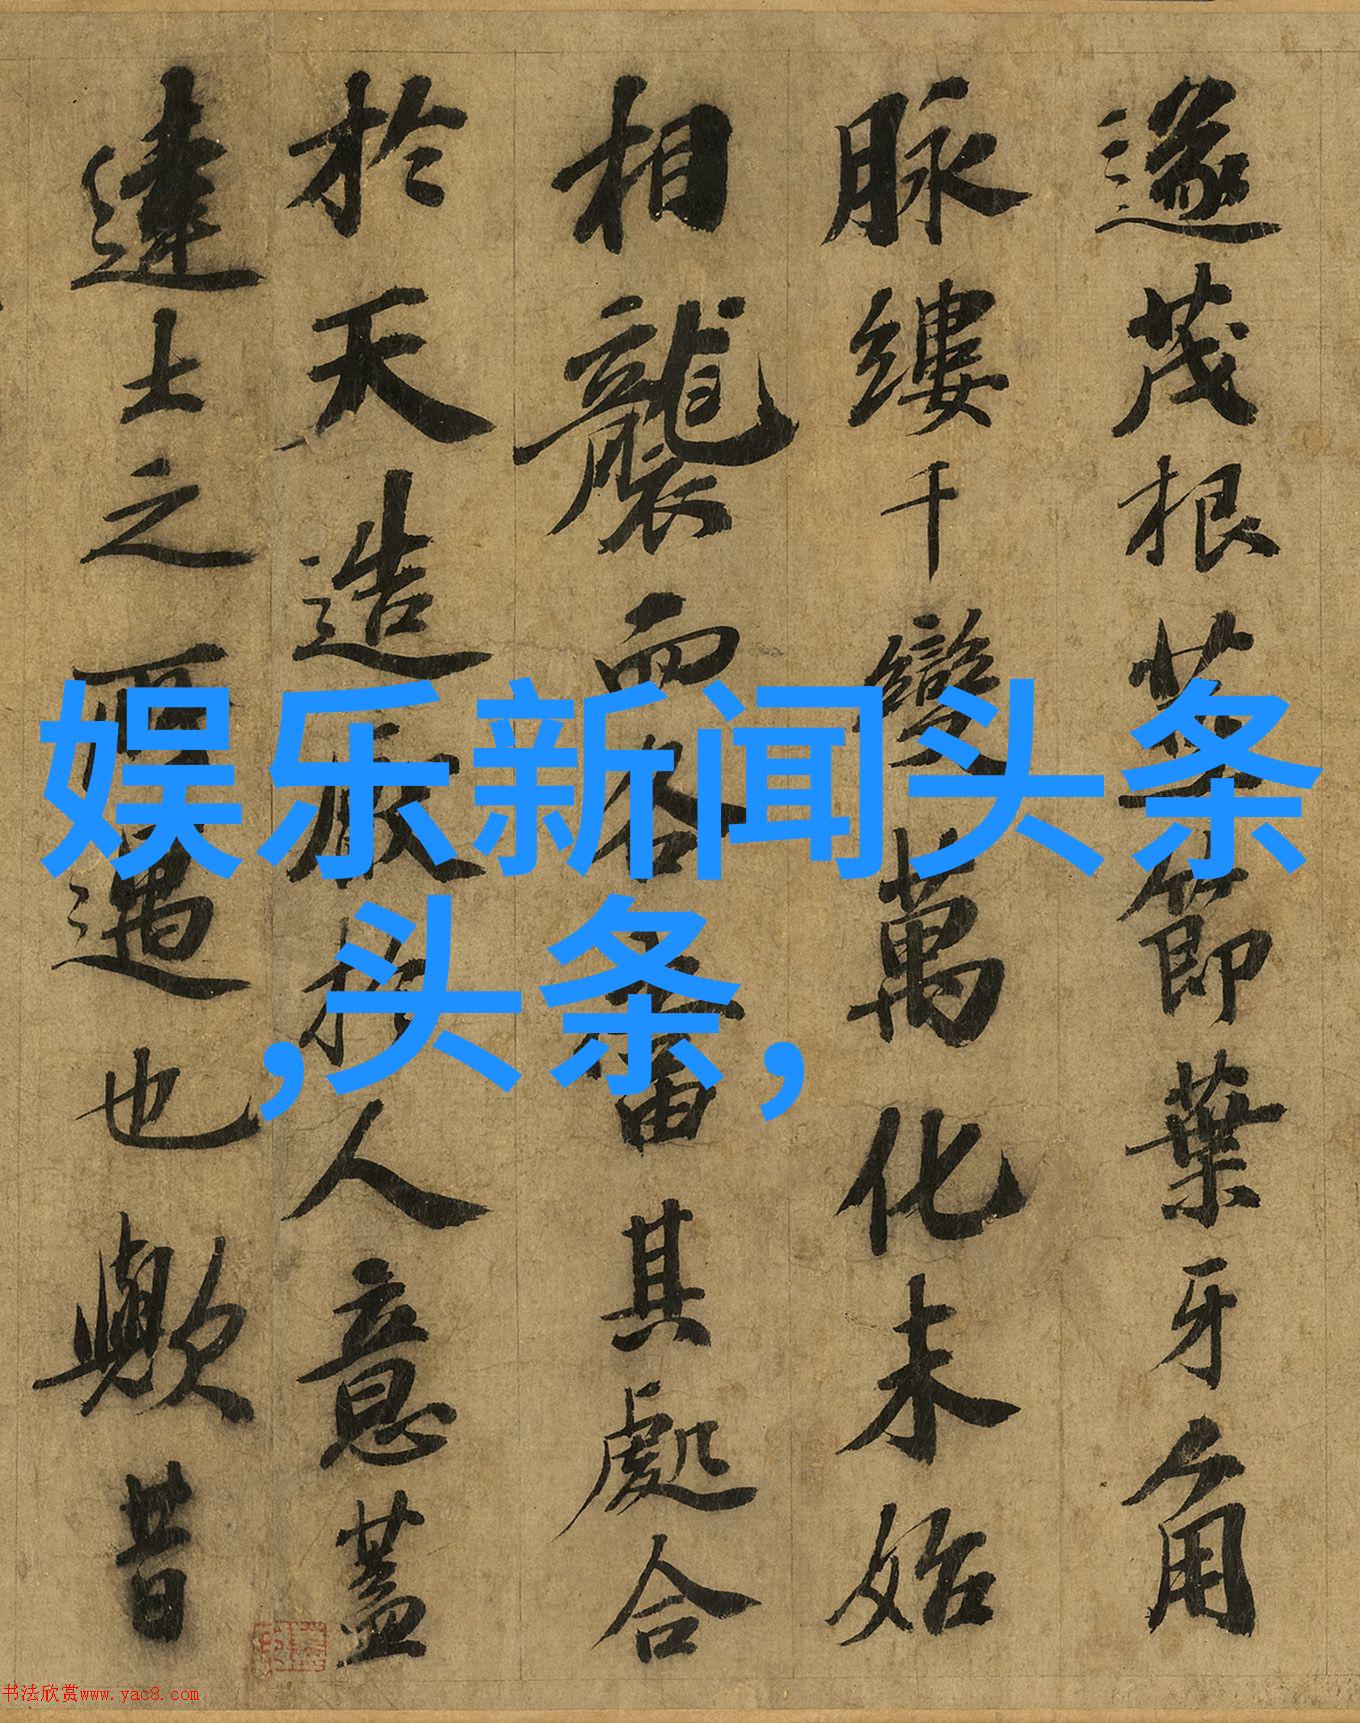 遂茂根莖節葉牙角
脉縷千變萬化未始
相襲而各當其處合
於天造厭於人意蓋
達士之所遇也歟昔
娱乐新闻头条
,头条,
书法欣赏www.yac8.com